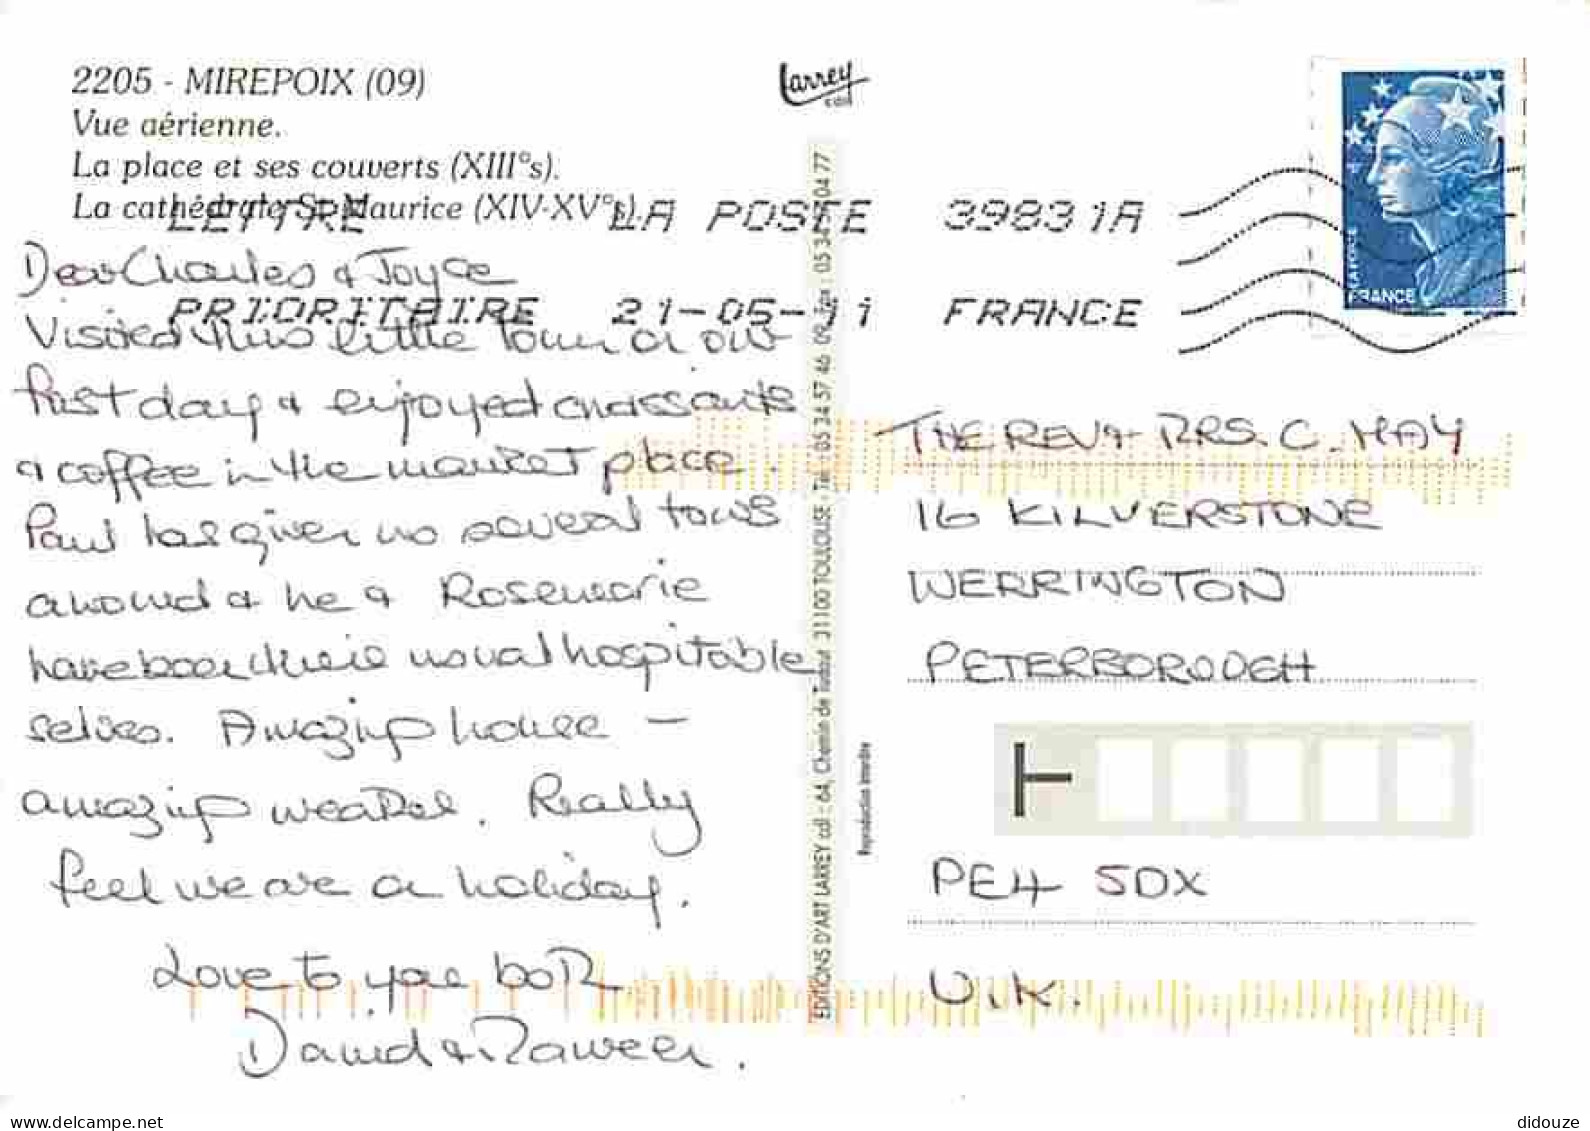 2205 - MIREPOIX (09)
Vue aérienne.
La place et ses couverts (XIII°s).
La cathédrale St Maurice (XIV-XV°s).
Larrey
LETTRE LA POSTE 39831A
PRIORITAIRE 21-05-11 FRANCE
LA POSTE
FRANCE
Dear Charles & Joyce
Visited this little town on our
first day & enjoyed croissants
& coffee in the market place.
Paul has given us several tours
around & he & Rosemarie
have been their usual hospitable
selves. Amazing house -
amazing weather. Really
feel we are on holiday.
Love to you both
David &
EDITIONS D'ART LARREY cdl : 64, Chemin de 31100 TOULOUSE - Tél : 05 34 57 46 09 Fax : 05 34 04 77
Reproduction interdite
THE REV & MRS. C. MAY
16 KILVERSTONE
WERRINGTON
PETERBOROUGH
PE4 5DX
U.K.
delcampe.net
didouze